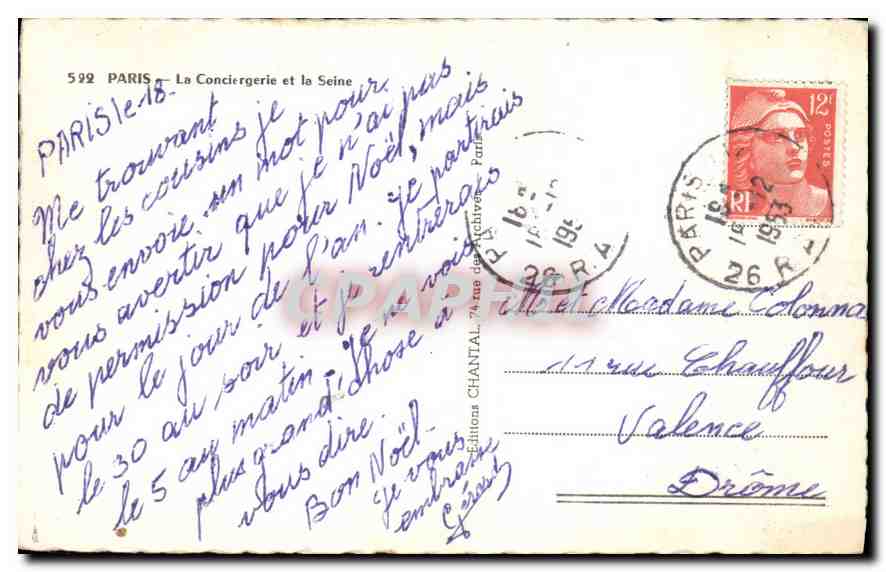 522 PARIS - La Conciergerie et la Seine
PARIS le 18-
Me trouvant
chez les cousins je
vous envoie un mot pour
vous avertir que je n'ai pas
de permission pour Noël, mais
pour le jour de l'an. Je partirais
le 30 au soir et je rentrerais
le 5 au matin. Je ne vois
plus grand'chose à
vous dire.
Bon Noël-
Je vous
embrasse
Gérard
Editions CHANTAL, 74, rue des Archives, Paris
12F
POSTES
RF
PARIS
18
12
1953
26 R.A
PARIS
18
12
1953
26 R.A
CPAPHIL
M et Madame Colonna
11 rue Chauffour
Valence
Drôme